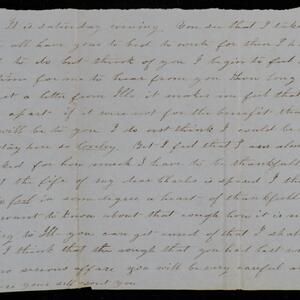 It is saturday evening. You see that I take
all have gone to bed to write for then I h
to do but think of you I begin to feel
time for me to hear from you How long
t a letter from Ills it makes me feel that
apart if it were not for the benefit that
will be to you I do not think I could be
stay here so lonely. But I feel that I am alw
ked for how much I have to be thankfull
t the life of my dear Charls is spared I tha
feel in some degree a heart of thankfull
want to know about that cough how it is n
g to Ill you can get cured of that I shal
I think that the cough that you had last w
no serious affare you will be very careful a
your self wont you